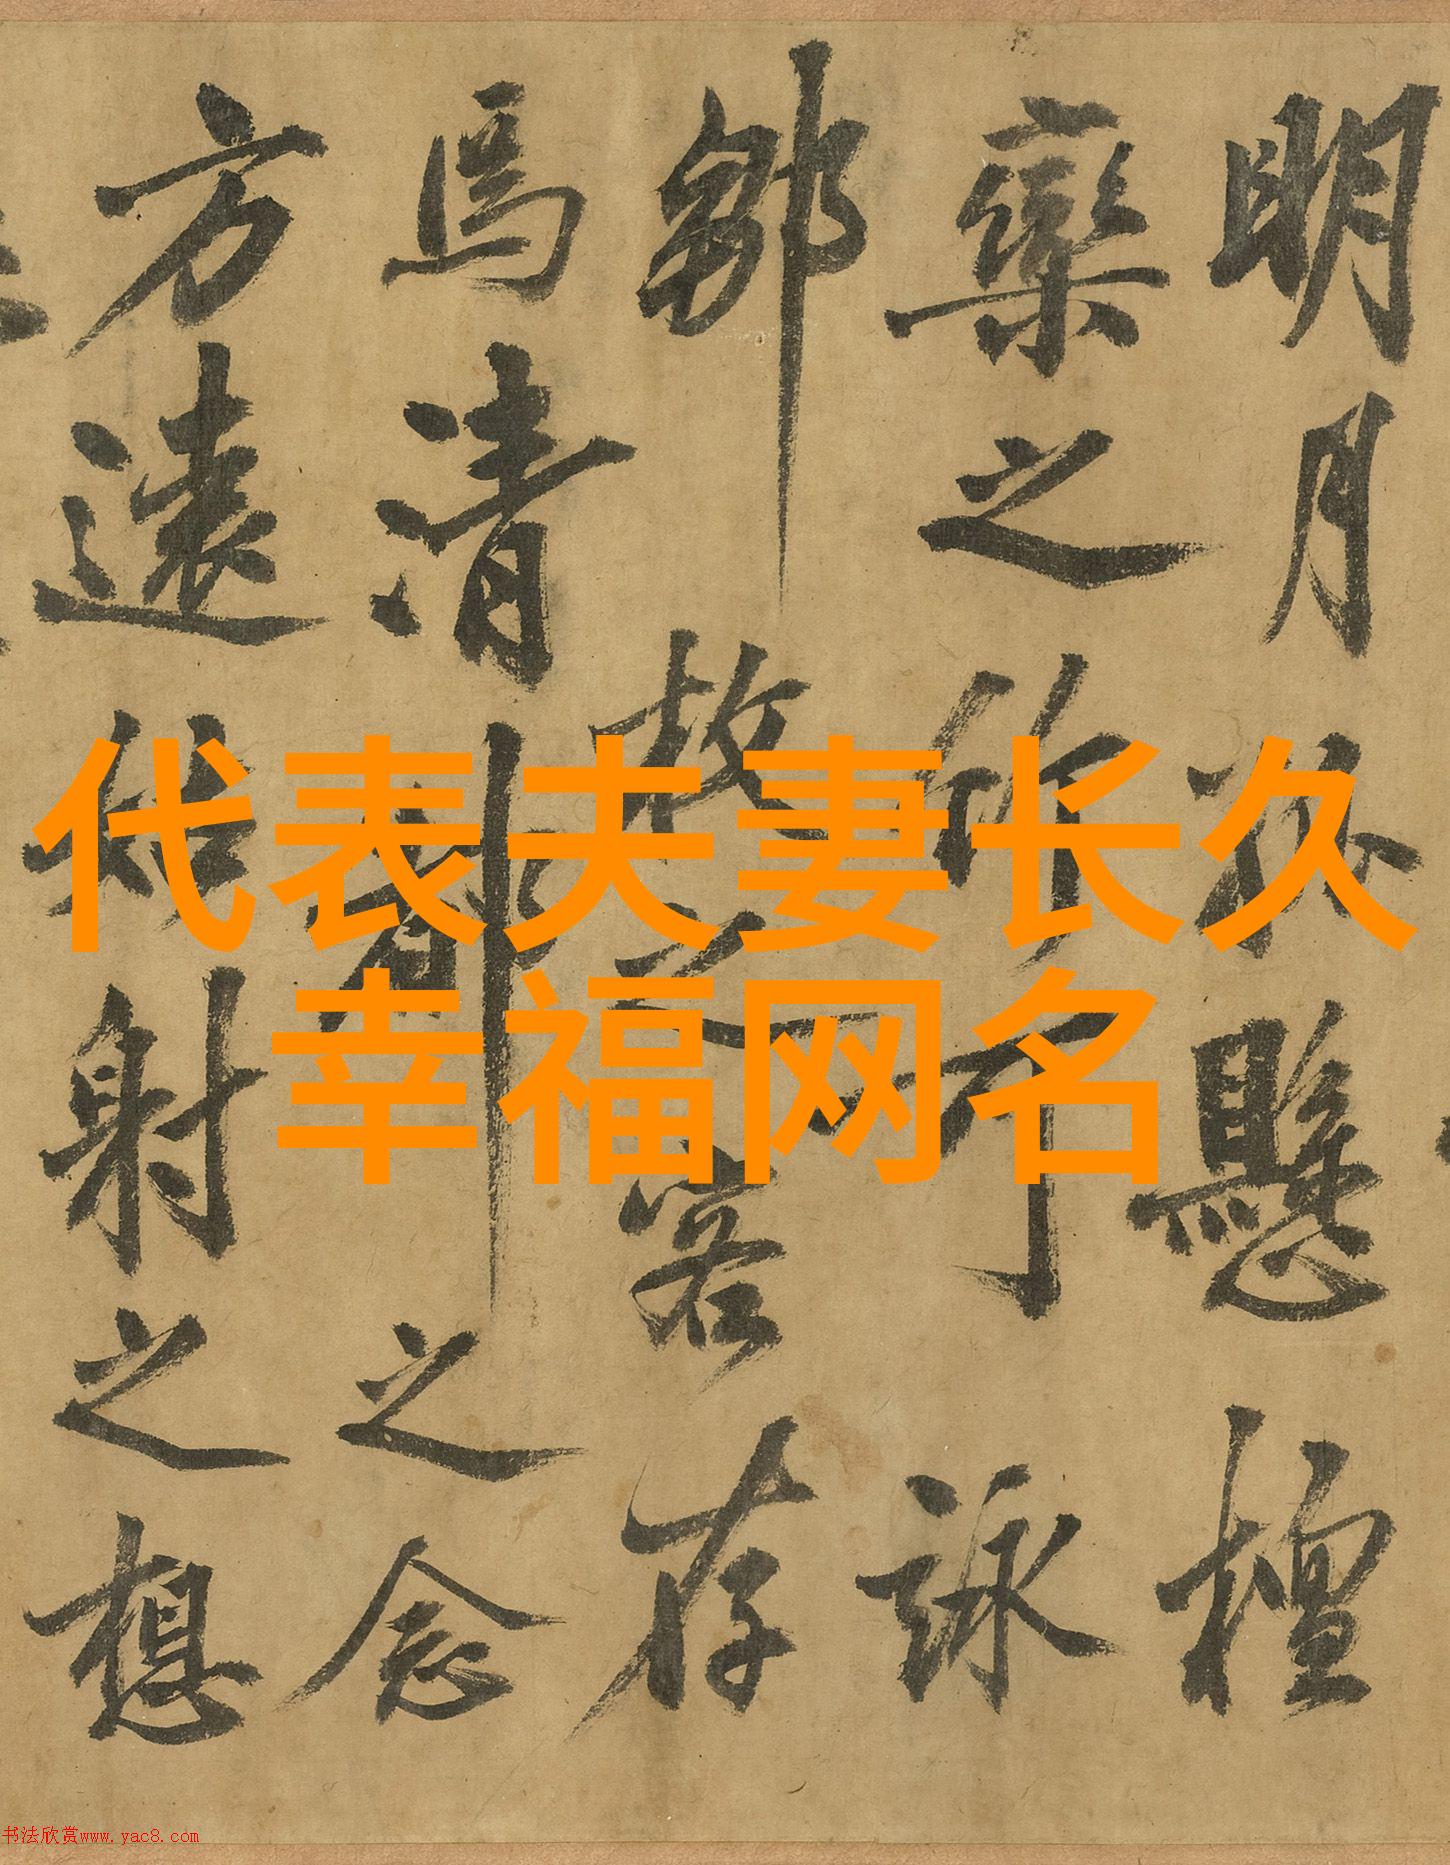 明月夜懸檀
欒之所可詠
鄒枚之客存
焉清都之念
方遠姑射之想
代表夫妻长久
幸福网名
书法欣赏www.yac8.com